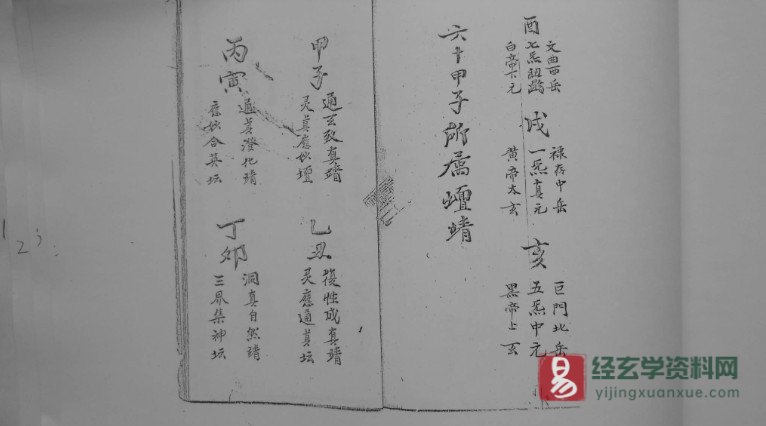 酉
文曲西岳
七炁
白帝下元
戌
禄存中岳
一炁真元
黄帝太玄
亥
巨門北岳
五炁中元
黑帝上玄
六十甲子所属壇靖
甲子
通玄致真靖
灵真應妙壇
乙丑
復性成真靖
灵應通真坛
丙寅
通真澄化靖
應妙合真坛
丁卯
洞真自然靖
三界集神坛
易
经玄学资料网
yijingxuanxue.com